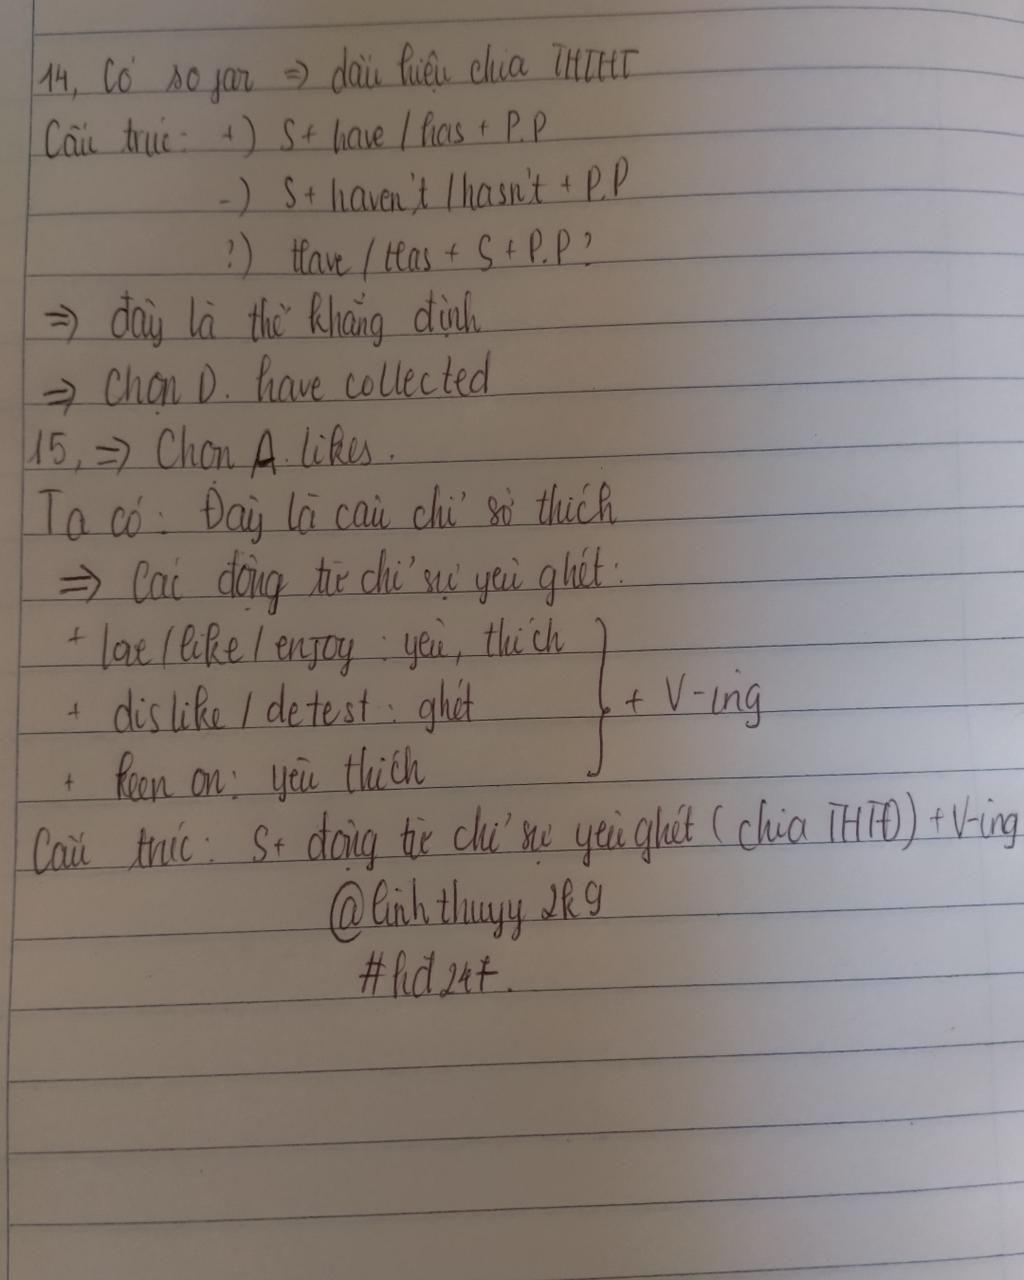 14, Có so far => dấu hiệu chia THTHT
Cấu trúc: +) S+ have / has + P.P
-) S+ haven't / hasn't + P.P
?) Have / Has + S + P.P?
=> đây là thể khẳng định
=> Chọn D. have collected
15, => Chọn A. likes.
Ta có: Đây là câu chỉ sở thích
=> Các động từ chỉ sự yêu ghét:
+ love / like / enjoy : yêu, thích
+ dislike / detest : ghét } + V-ing
+ keen on: yêu thích
Cấu trúc: S+ động từ chỉ sự yêu ghét ( chia THTĐ) + V-ing
@linhthuyy2k9
#hd247.